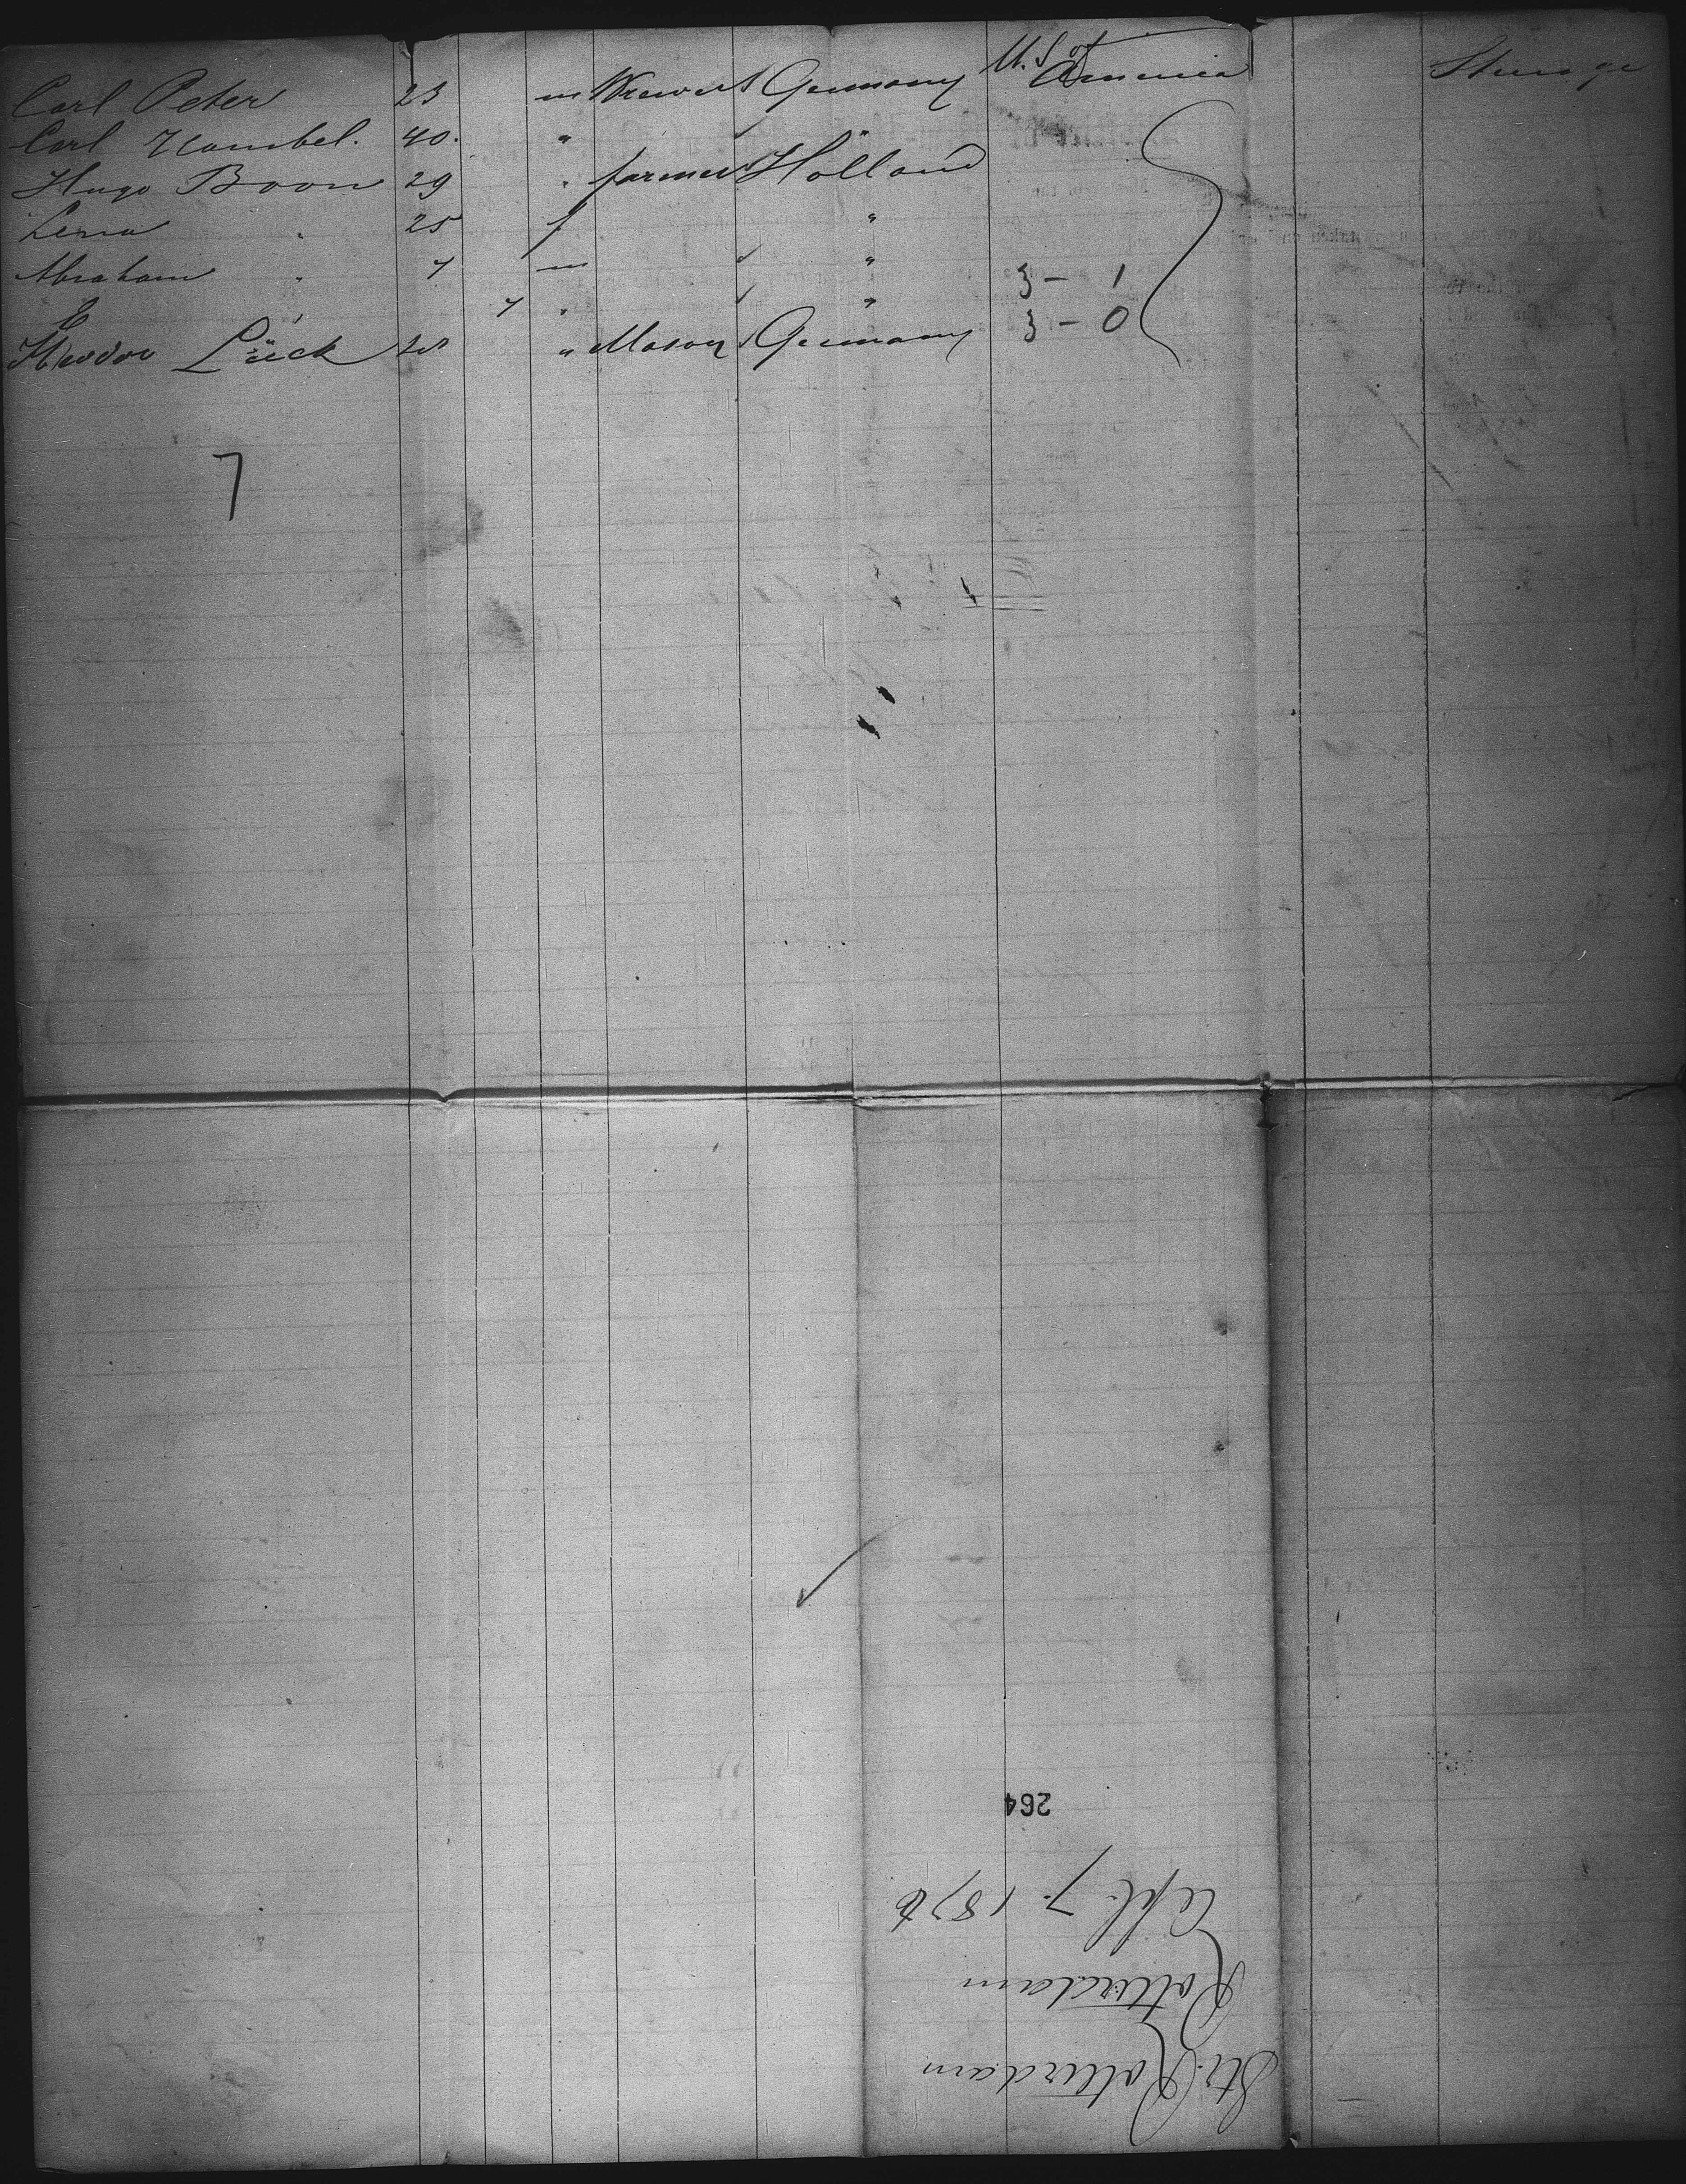 Carl Peter 23 m Brewer Germany U. S. of America Steerage
Carl Hambel. 40. " " "
Hugo Boon 29 " farmer Holland
Lena " 25 f "
Abraham " 7 m "
E " 7 " " 3 - 1
Theodor Lück 20 " Mason Germany 3 - 0
7
Str. Rotterdam
Rotterdam
Apl. 7. 1876
264